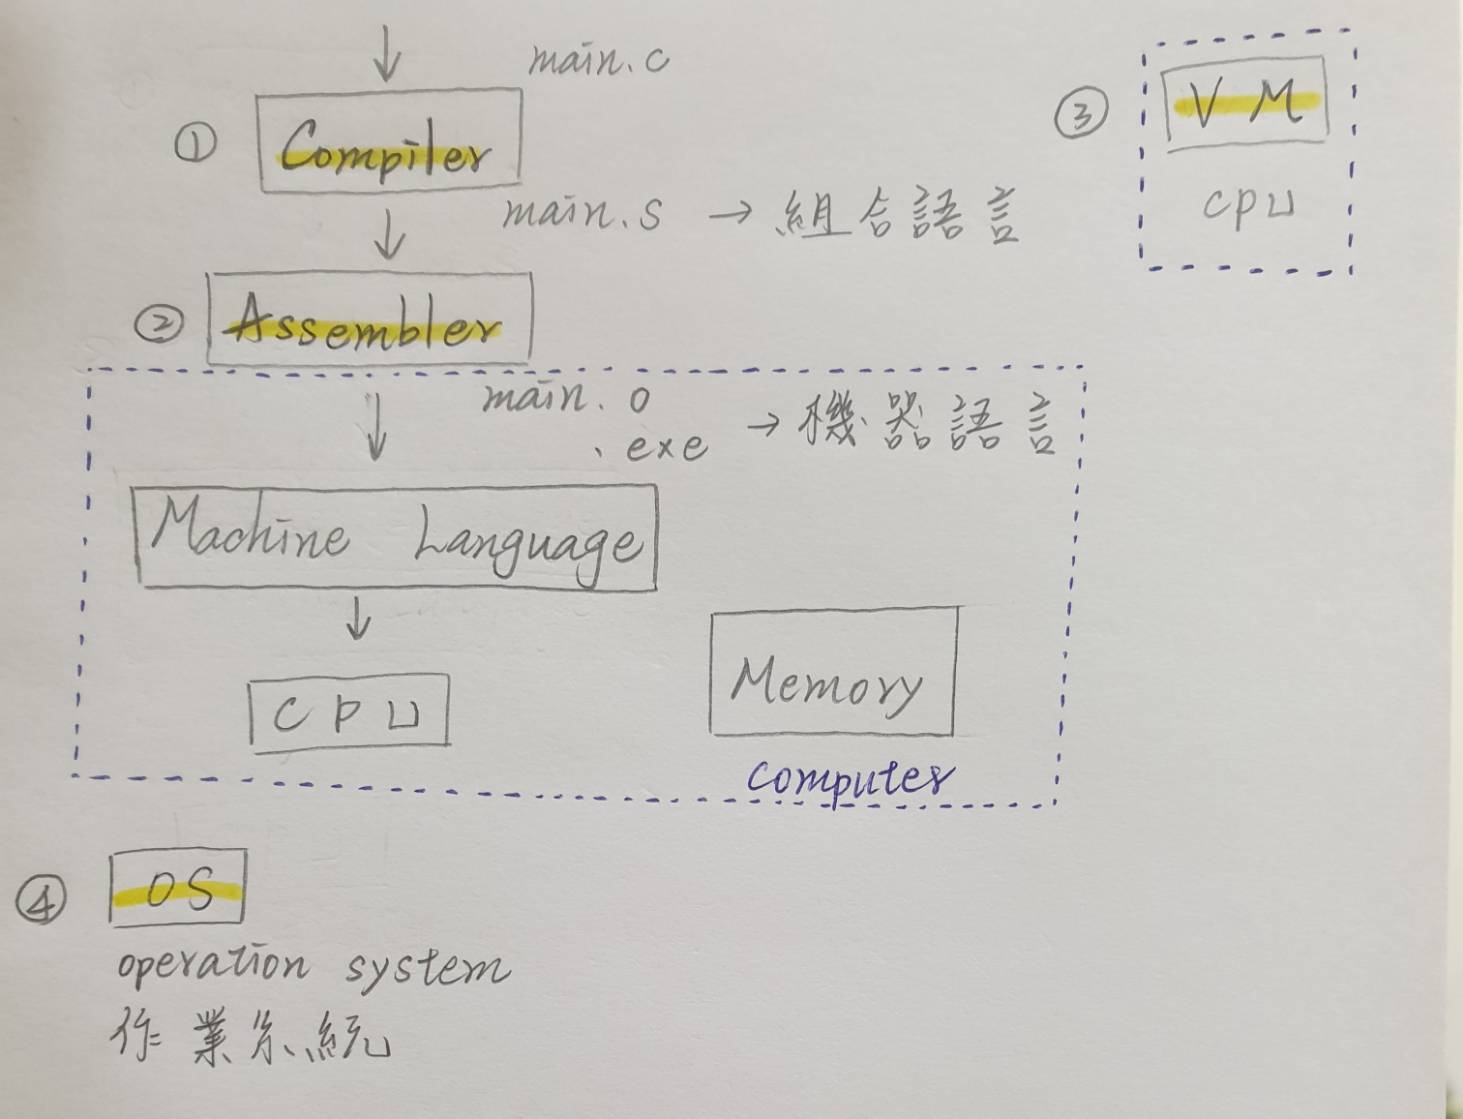 main.c
① Compiler
main.s → 組合語言
② Assembler
main.o
.exe → 機器語言
Machine Language
CPU
Memory
computer
③ VM
CPU
④ OS
operation system
作業系統